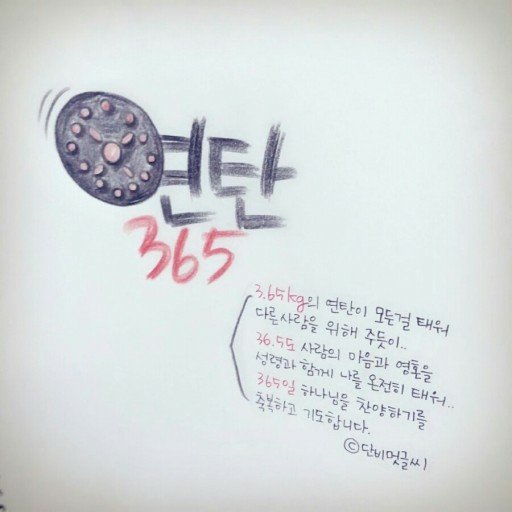 연탄
365
3.65kg의 연탄이 모든걸 태워
다른사람을 위해 주듯이..
36.5도 사랑의 마음과 영혼을
성령과 함께 나를 온전히 태워..
365일 하나님을 찬양하기를
축복하고 기도합니다.
ⓒ단비멋글씨